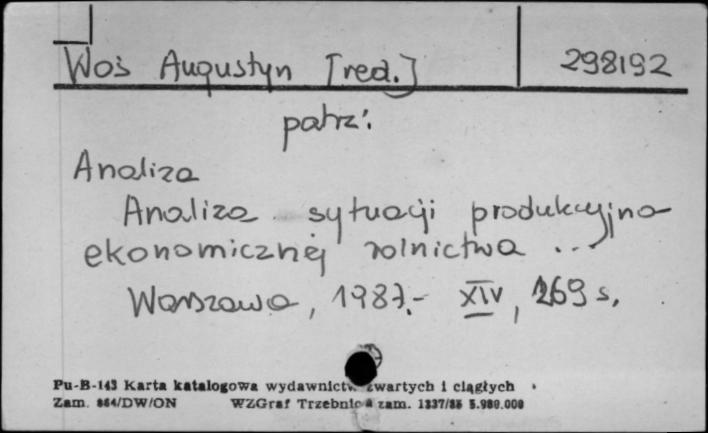 Woś Augustyn [red.] 298192
patrz:
Analiza
Analiza sytuacji produkcyjno
ekonomicznej rolnictwa ...
Warszawa, 1987.- XIV, 269 s.
Pu-B-143 Karta katalogowa wydawnictw zwartych i ciągłych
Zam. 864/DW/ON WZGraf Trzebnica zam. 1337/85 5.980.000